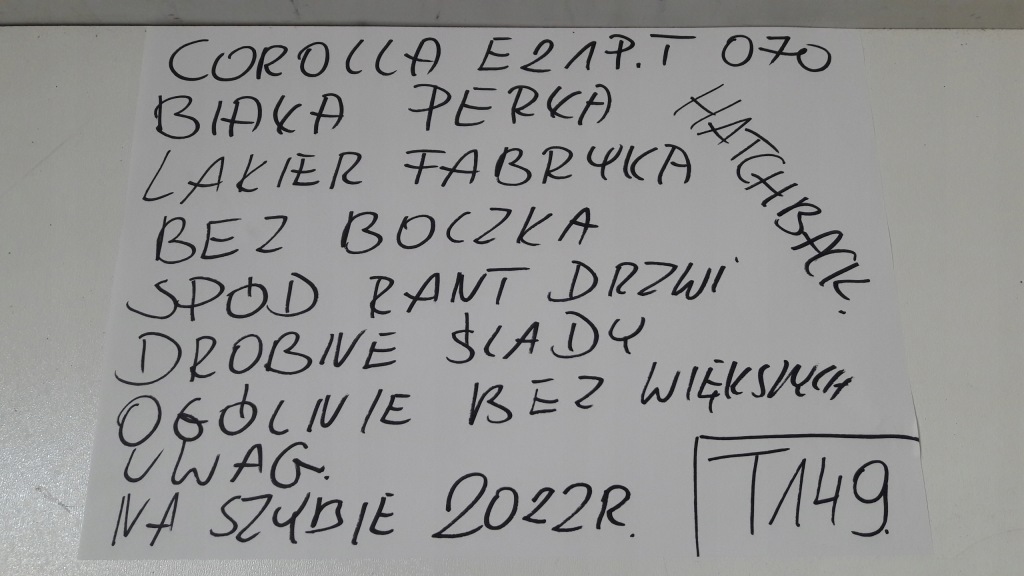 COROLLA E21 P.T 070
BIAŁA PERŁA
HATCHBACK.
LAKIER FABRYKA
BEZ BOCZKA
SPÓD RANT DRZWI
DROBNE ŚLADY
OGÓLNIE BEZ WIĘKSZYCH
UWAG.
NA SZYBIE 2022R.
T149.